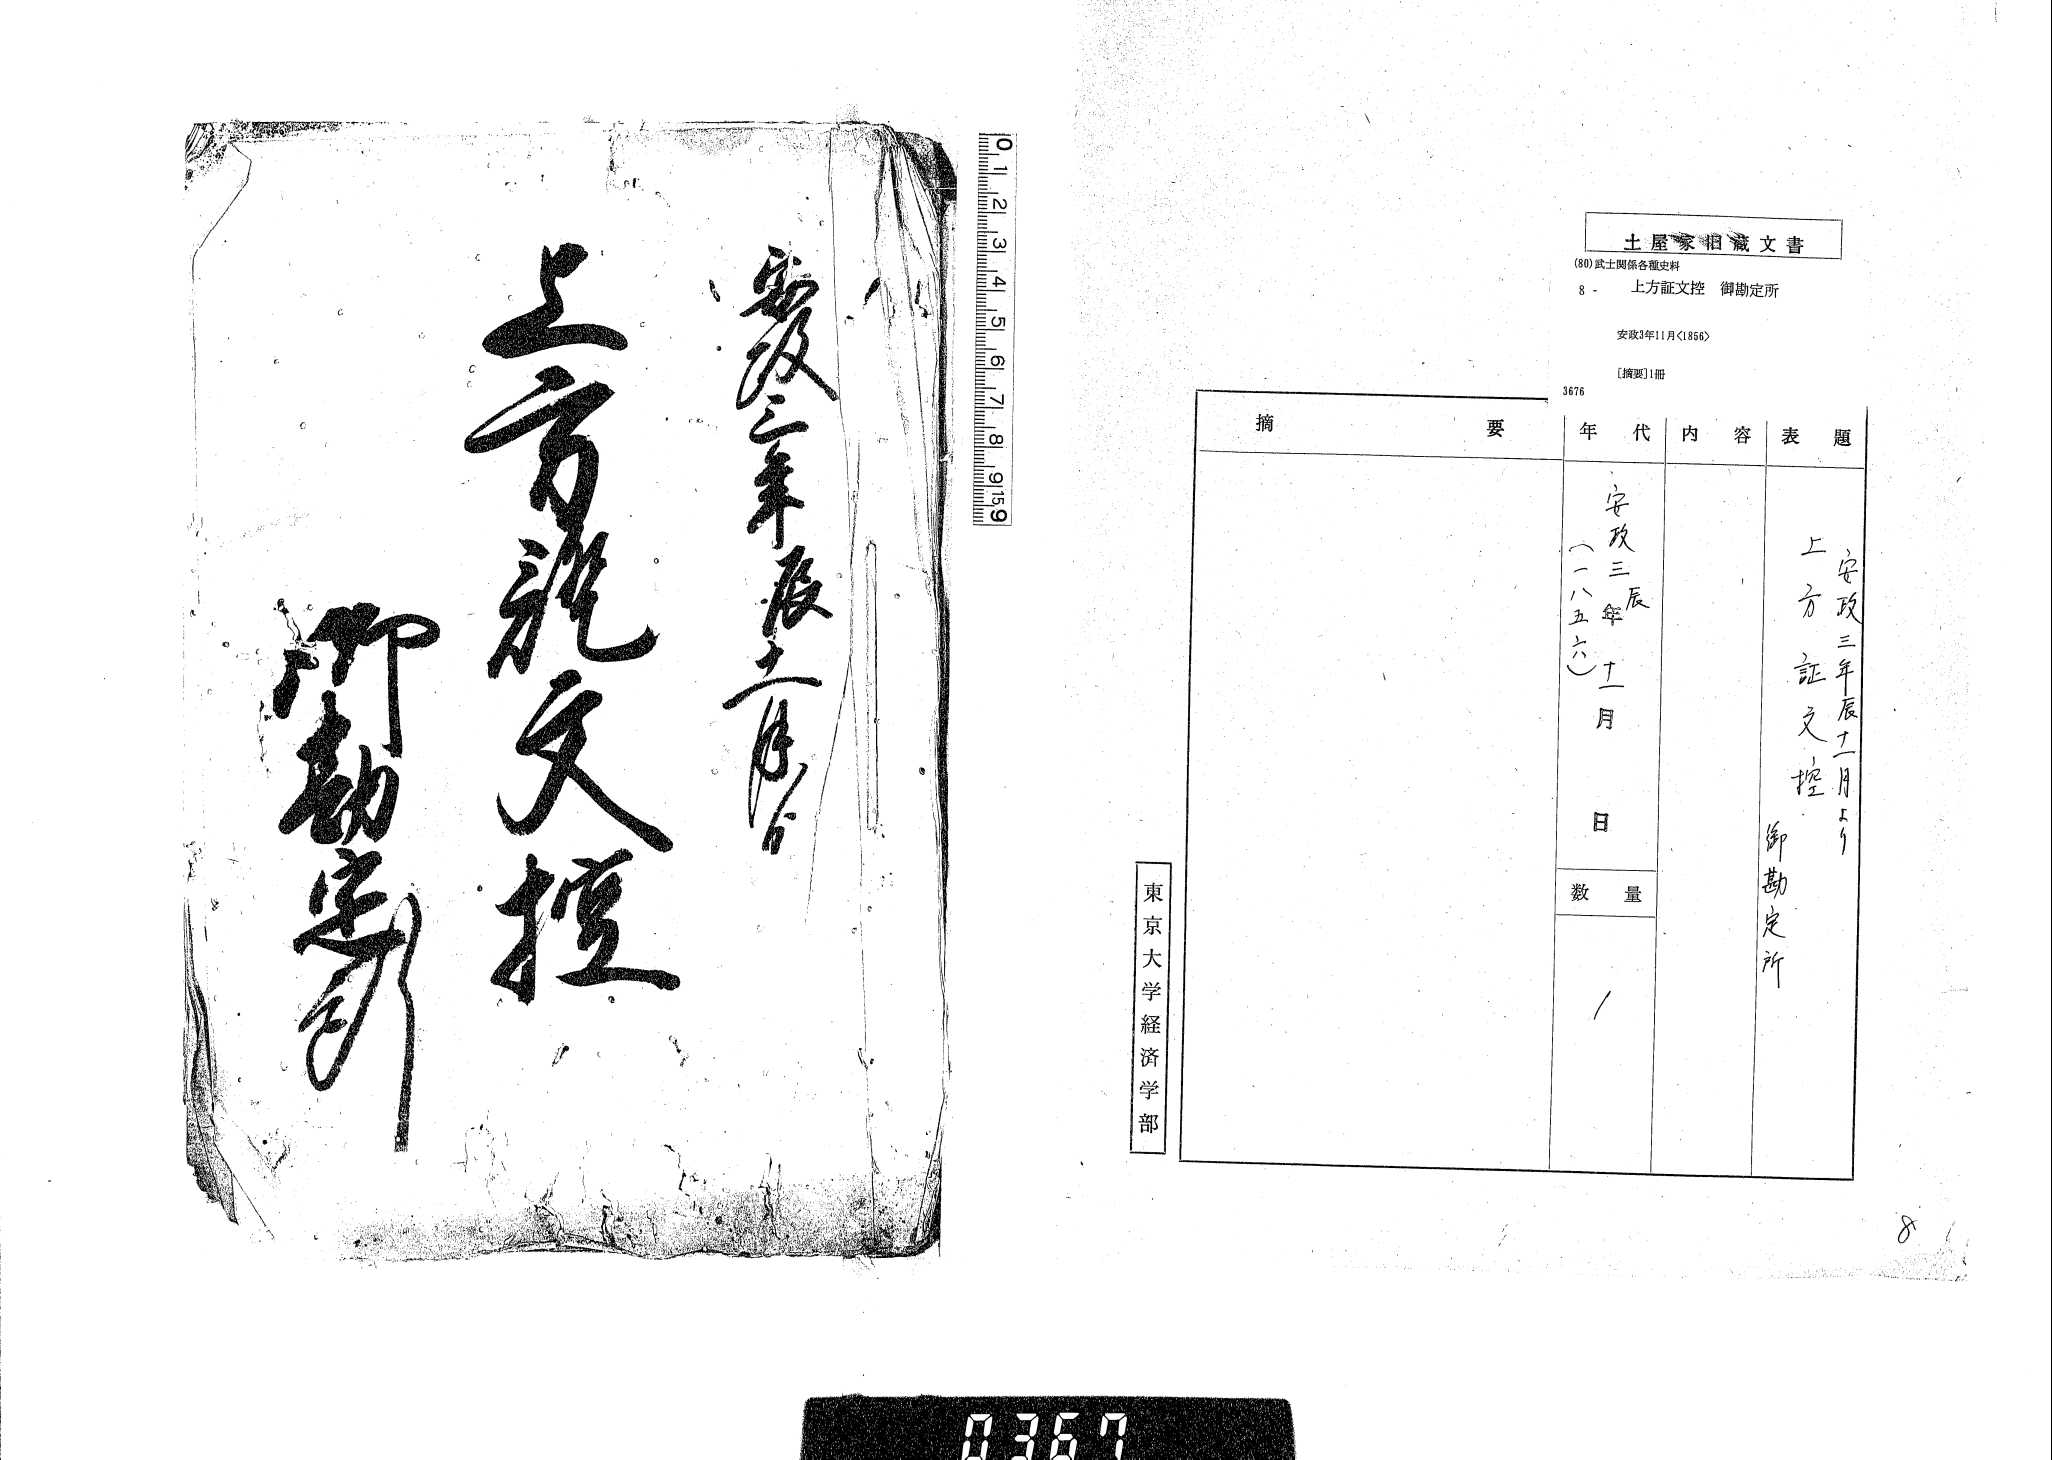 土屋家旧蔵文書
(80)武士関係各種史料
8 - 上方証文控 御勘定所
安政3年11月<1856>
[摘要]1冊
3676
表題
内容
年代
摘要
安政三年辰十一月より
上方証文控
御勘定所
安政三辰年十一月 日
(一八五六)
数量
1
東京大学経済学部
8
0 1 2 3 4 5 6 7 8 9 15 9
安政三年辰十一月ゟ
上方証文控
御勘定所
0367